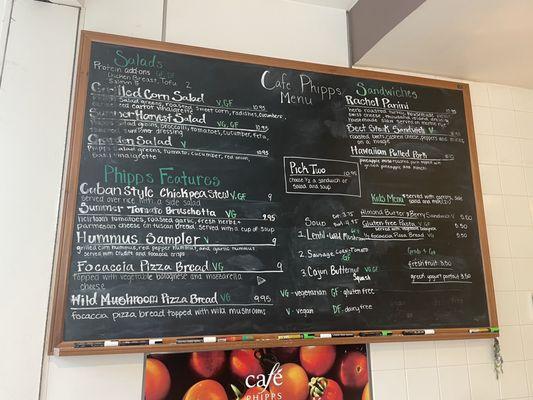 Salads
Protein add-ons GF DF
Chicken Breast, Tofu 2
Salmon
Grilled Corn Salad V, GF
Salad greens, roasted sweet corn, radishes,
carrot vinaigrette cucumbers 10.95
Summer Harvest Salad VG, GF
grains, broccoli, tomatoes, cucumber, feta,
dressing 10.95
Garden Salad V
Salad greens, tomato, cucumber, red onion,
basil vinaigrette 10.95
Phipps Features
Cuban Style Chickpea Stew V, GF 9
served over rice with a side salad
Summer Tomato Bruschetta VG 9.95
heirloom tomatoes, roasted garlic, fresh herbs +
parmesan cheese on tuscan bread. served with a cup of soup
Hummus Sampler V 9
grilled corn hummus, red pepper hummus, and garlic hummus
served with crudité and focaccia crisps
Focaccia Pizza Bread VG 9
topped with vegetable bolognese and mozzarella
cheese
Wild Mushroom Pizza Bread VG 9.95
focaccia pizza bread topped with wild mushrooms
Cafe Phipps
Menu
Pick Two 10.95
choose ½ a sandwich or
salad and soup
Soup
1. Lentil + Wild Mushroom
2. Sausage Tomato
GF
3. Cajun Butternut VG GF
Squash
VG - vegetarian GF - gluten free
V - vegan DF - dairy free
Sandwiches
Rachel Panini
herb roasted turkey,
swiss cheese, thousand island
10.95
Beet Stack Sandwich
roasted beets, cashew cheese, peppers and
on a hoagie
Hawaiian Pulled Pork
Kids Menu served with carrots, side
salad and milk
Almond Butter + Berry Sandwich V 5.50
Gluten free Pasta V, GF 5.50
served with vegetable bolognese
½ focaccia Pizza Bread VG 5.50
Grab + Go
fresh fruit 3.50
greek yogurt parfait 3.50
café
PHIPPS